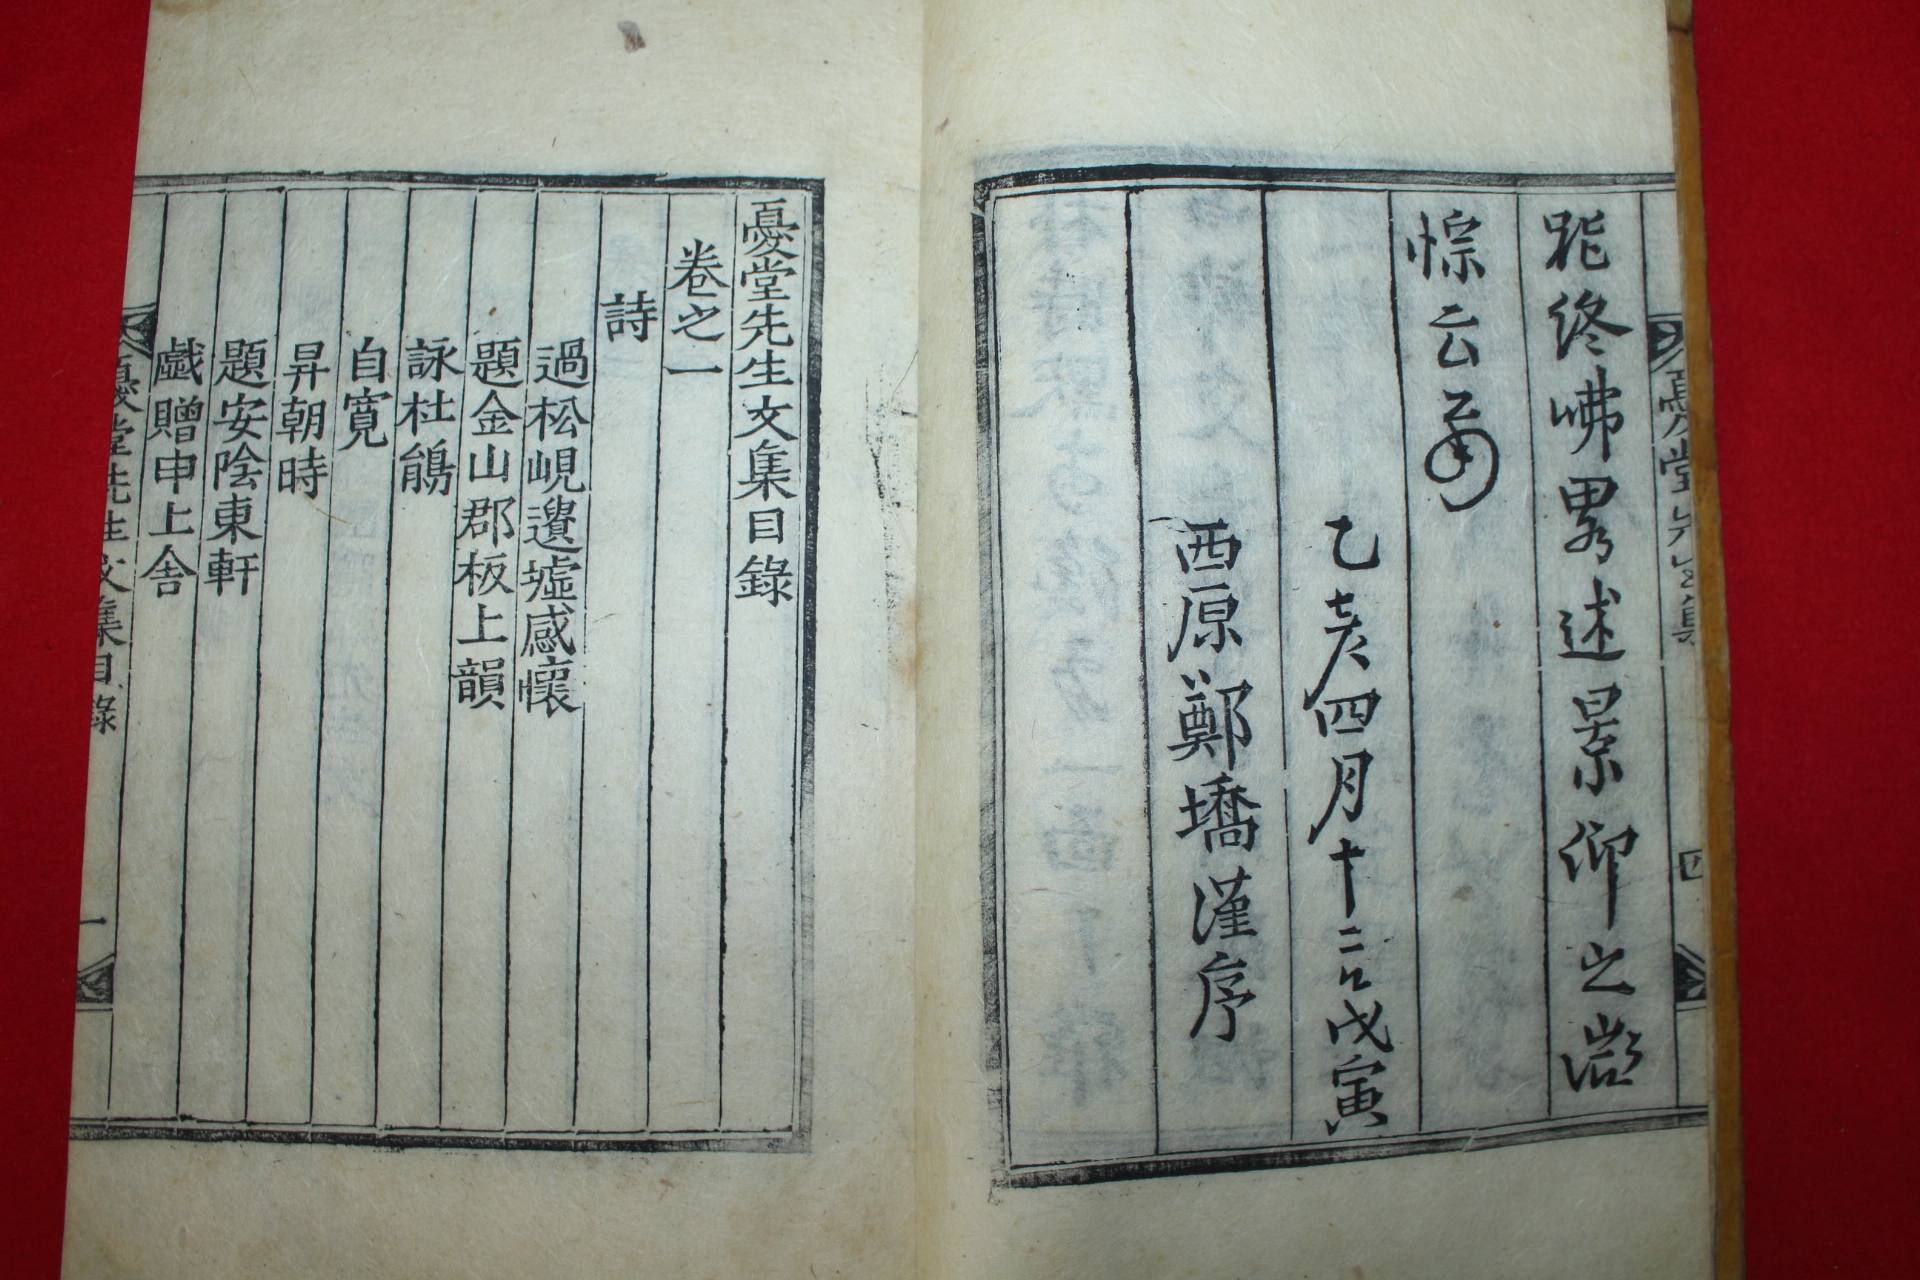 憂堂先生文集 四
能終咈畧述景仰之微
悰云爾
乙亥四月十二日戊寅
西原鄭墧謹序
憂堂先生文集目錄
卷之一
詩
過松峴遺墟感懷
題金山郡板上韻
詠杜鵑
自寬
昇朝時
題安陰東軒
戱贈申上舍
憂堂先生文集目錄 一